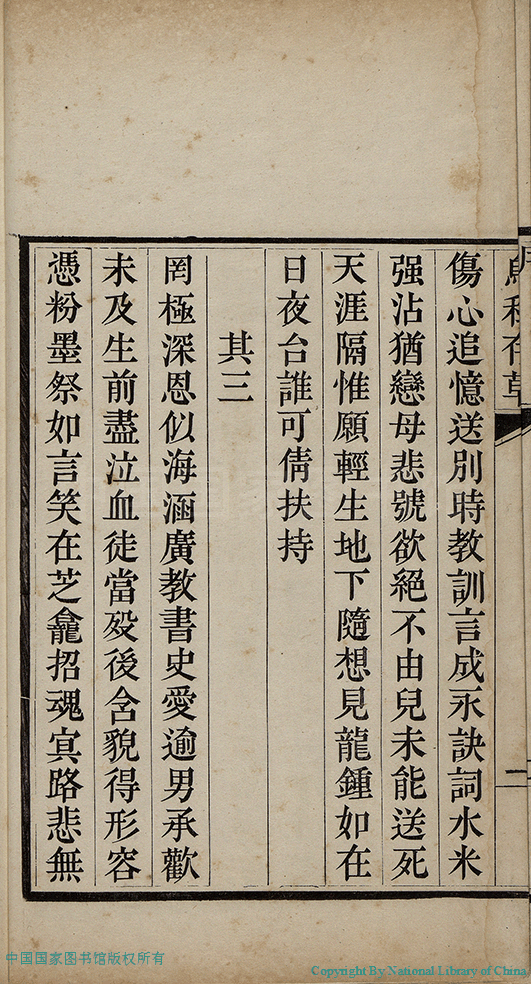 傷心追憶送別時教訓言成永訣詞水米
强沾猶戀母悲號欲絕不由兒未能送死
天涯隔惟願輕生地下隨想見龍鍾如在
日夜台誰可倩扶持
其三
罔極深恩似海涵廣教書史愛逾男承歡
未及生前盡泣血徒當歿後含貌得形容
憑粉墨祭如言笑在芝龕招魂寘路悲無
二
中国国家图书馆版权所有
Copyright By National Library of China